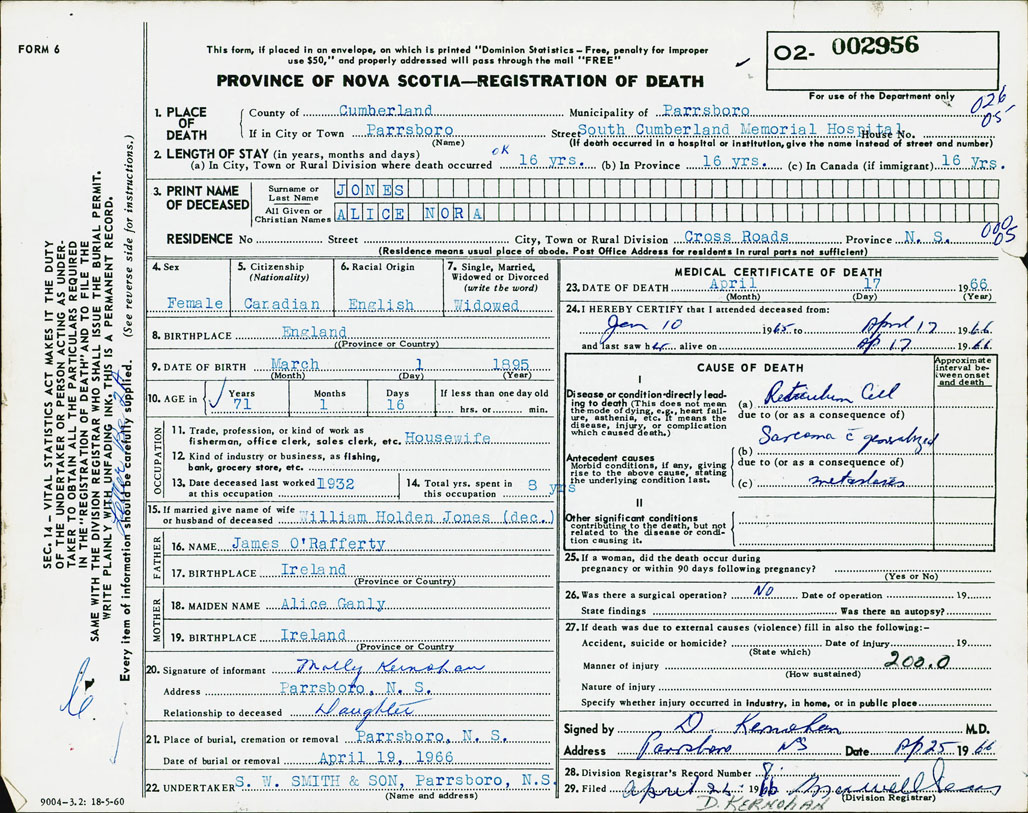 FORM 6
This form, if placed in an envelope, on which is printed "Dominion Statistics – Free, penalty for improper
use $50," and properly addressed will pass through the mail "FREE"
PROVINCE OF NOVA SCOTIA—REGISTRATION OF DEATH
O2- 002956
For use of the Department only
026
05
1. PLACE OF DEATH
County of Cumberland Municipality of Parrsboro
If in City or Town Parrsboro Street South Cumberland Memorial Hospital House No.
(Name) (If death occurred in a hospital or institution, give the name instead of street and number)
2. LENGTH OF STAY (in years, months and days) OK
(a) In City, Town or Rural Division where death occurred 16 yrs. (b) In Province 16 yrs. (c) In Canada (if immigrant) 16 yrs.
3. PRINT NAME OF DECEASED
Surname or Last Name JONES
All Given or Christian Names ALICE NORA
RESIDENCE No Street City, Town or Rural Division Cross Roads Province N. S.
000
05
(Residence means usual place of abode. Post Office Address for residents in rural parts not sufficient)
4. Sex Female
5. Citizenship (Nationality) Canadian
6. Racial Origin English
7. Single, Married, Widowed or Divorced (write the word) Widowed
8. BIRTHPLACE England
((Province or Country)
9. DATE OF BIRTH March 1 1895
(Month) (Day) (Year)
10. AGE in Years Months Days If less than one day old
71 1 16 hrs. or min.
OCCUPATION
11. Trade, profession, or kind of work as
fisherman, office clerk, sales clerk, etc. Housewife
12. Kind of industry or business, as fishing,
bank, grocery store, etc.
13. Date deceased last worked at this occupation 1932
14. Total yrs. spent in this occupation 8 yrs
15. If married give name of wife
or husband of deceased William Holden Jones (dec.)
FATHER
16. NAME James O'Rafferty
17. BIRTHPLACE Ireland
(Province or Country)
MOTHER
18. MAIDEN NAME Alice Ganly
19. BIRTHPLACE Ireland
(Province or Country
20. Signature of informant Molly Kernohan
Address Parrsboro, N. S.
Relationship to deceased Daughter
21. Place of burial, cremation or removal Parrsboro, N. S.
Date of burial or removal April 19, 1966
22. UNDERTAKER S. W. SMITH & SON, Parrsboro, N.S.
(Name and address)
9004–3.2: 18-5-60
MEDICAL CERTIFICATE OF DEATH
23. DATE OF DEATH April 17 1966
(Month) (Day) (Year)
24. I HEREBY CERTIFY that I attended deceased from:
Jan 10 1965 to April 17 1966
and last saw her alive on Ap 17 1966
CAUSE OF DEATH
Approximate interval between onset and death
I
Disease or condition directly leading to death (This does not mean
the mode of dying, e.g., heart failure, asthenia, etc. It means the
disease, injury, or complication
which caused death.)
(a) Reticulum Cell
due to (or as a consequence of)
Sarcoma c̄ generalized
Antecedent causes
Morbid conditions, if any, giving
rise to the above cause, stating
the underlying condition last.
(b)
due to (or as a consequence of)
(c) metastasis
II
Other significant conditions
contributing to the death, but not
related to the disease or condition causing it.
25. If a woman, did the death occur during
pregnancy or within 90 days following pregnancy?
(Yes or No)
26. Was there a surgical operation? NO Date of operation 19
State findings Was there an autopsy?
27. If death was due to external causes (violence) fill in also the following:–
Accident, suicide or homicide? Date of injury 19
(State which)
Manner of injury 200.0
(How sustained)
Nature of injury
Specify whether injury occurred in industry, in home, or in public place
Signed by D. Kernohan M.D.
Address Parrsboro NS Date Ap 25 1966
28. Division Registrar's Record Number 8
29. Filed April 1966
(Division Registrar)
D. KERNOHAN
SEC. 14 – VITAL STATISTICS ACT MAKES IT THE DUTY
OF THE UNDERTAKER OR PERSON ACTING AS UNDERTAKER TO OBTAIN ALL THE PARTICULARS REQUIRED
IN THE "REGISTRATION OF DEATH" AND TO FILE THE
SAME WITH THE DIVISION REGISTRAR WHO SHALL ISSUE THE BURIAL PERMIT.
WRITE PLAINLY WITH UNFADING INK, THIS IS A PERMANENT RECORD.
Every item of information should be carefully supplied. (See reverse side for instructions.)